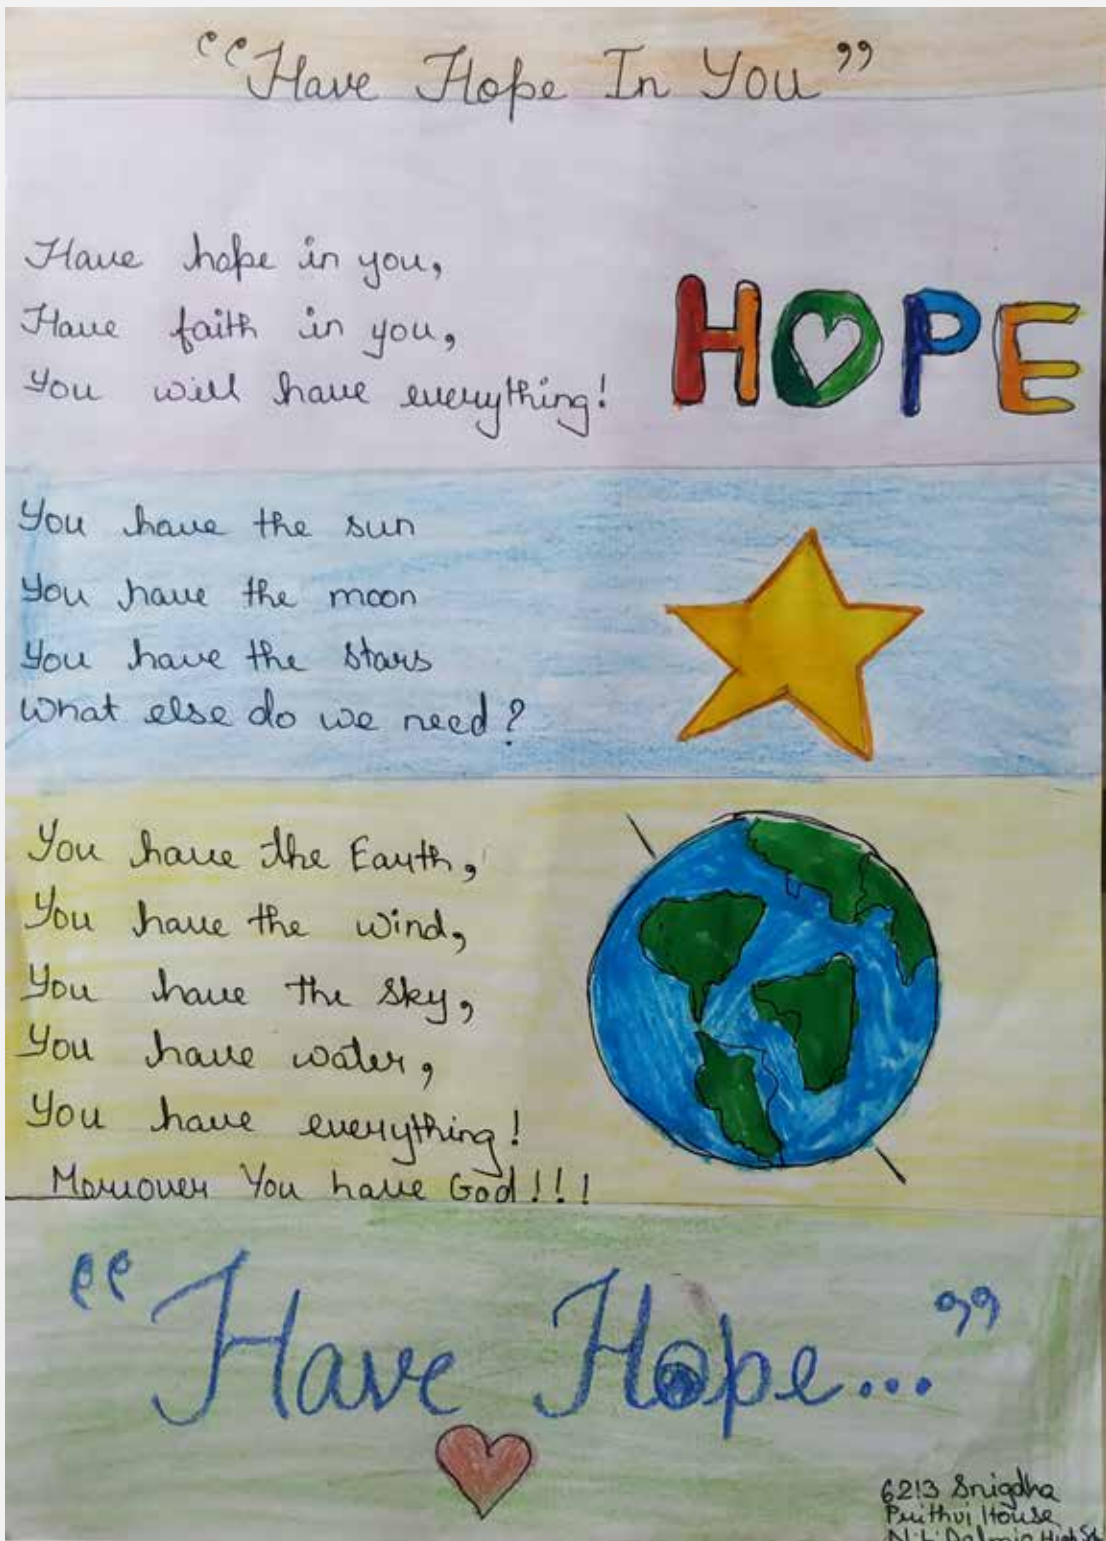 “Have Hope In You”
Have hope in you,
Have faith in you,
You will have everything!
HOPE
You have the sun
You have the moon
You have the stars
What else do we need?
You have the Earth,
You have the wind,
You have the sky,
You have water,
You have everything!
Moreover You have God!!!
“Have Hope...”
6213 Snigdha
Prithvi House
N.L. Dalmia High